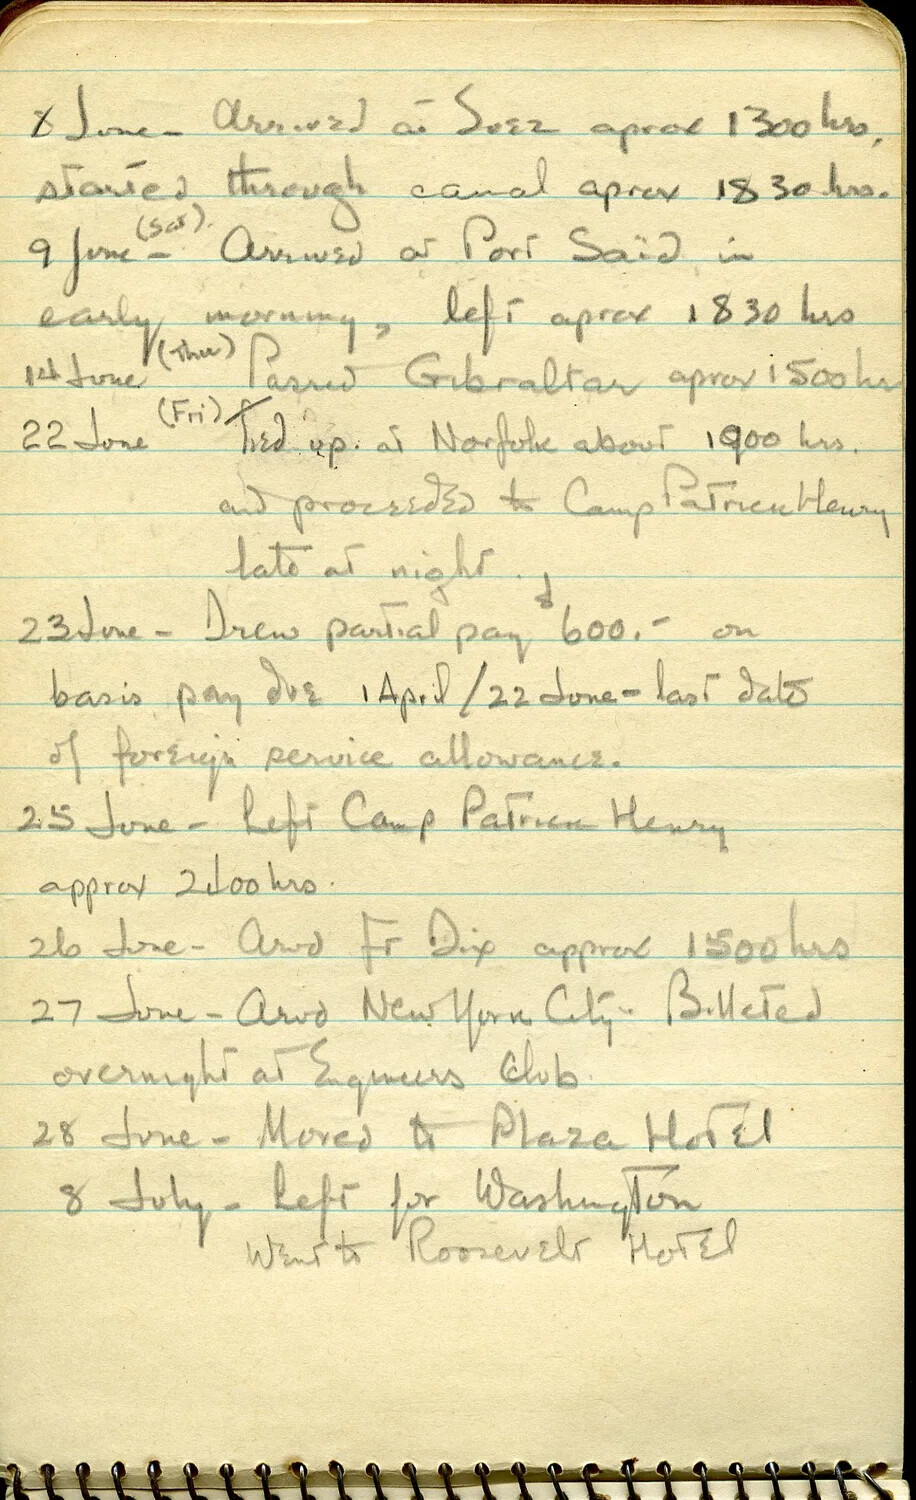 8 June - Arrived at Suez aprox 1300 hrs,
started through canal aprox 1830 hrs.
9 June (Sat) - Arrived at Port Saïd in
early morning, left aprox 1830 hrs
14 June (Thur) Passed Gibraltar aprox 1500 hrs
22 June (Fri) Tied up at Norfolk about 1900 hrs.
and proceeded to Camp Patrick Henry
late at night.
23 June - Drew partial pay $600.- on
basis pay due 1 April/22 June - last date
of foreign service allowance.
25 June - Left Camp Patrick Henry
approx hrs.
26 June - Arvd Ft Dix approx 1500 hrs
27 June - Arvd New York City. Billeted
overnight at Engineers Club.
28 June - Moved to Plaza Hotel
8 July - Left for Washington
Went to Roosevelt Hotel